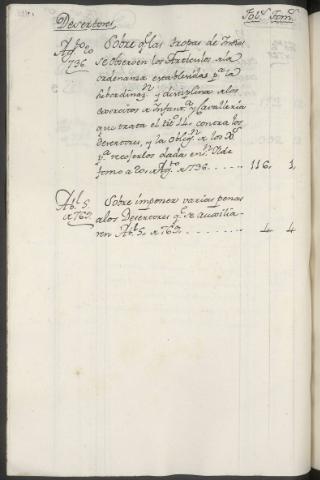 Desertores, Fol.s Tom.s
Ag.to 20 Sobre q.e las tropas de Indias
736. se observen los Articulos de la
ordenanza establecidas p.a la
subordinaz.n y disciplina de los
exercitos de Infant.a y Cavalleria
que trata el tit.o 14. contra los
desertores, y la oblig.n de los
p.a recojerlos dada en S.n Ilde
fonso a 20, de Ag.to de 1736. 116, 1,
Ab.l 5. Sobre imponer varias penas
de 1769. alos Desertores q.e se auxilia-
ren Ab.l 5, de 1769. 4 4